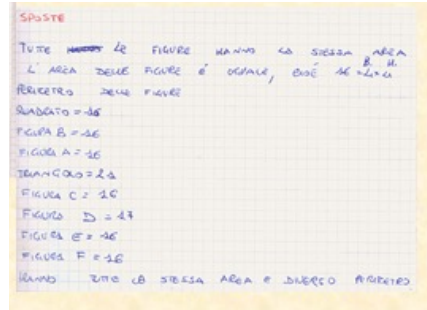 SPOSTE
TUTTE LE FIGURE HANNO LA STESSA AREA
B. H.
L' AREA DELLE FIGURE È UGUALE, CIOÈ 16 = 4 × 4
PERIMETRO DELLE FIGURE
QUADRATO = 16
FIGURA B = 16
FIGURA A = 16
TRIANGOLO = 21
FIGURA C = 16
FIGURA D = 17
FIGURA E = 16
FIGURA F = 16
HANNO TUTTE LA STESSA AREA E DIVERSO PERIMETRO